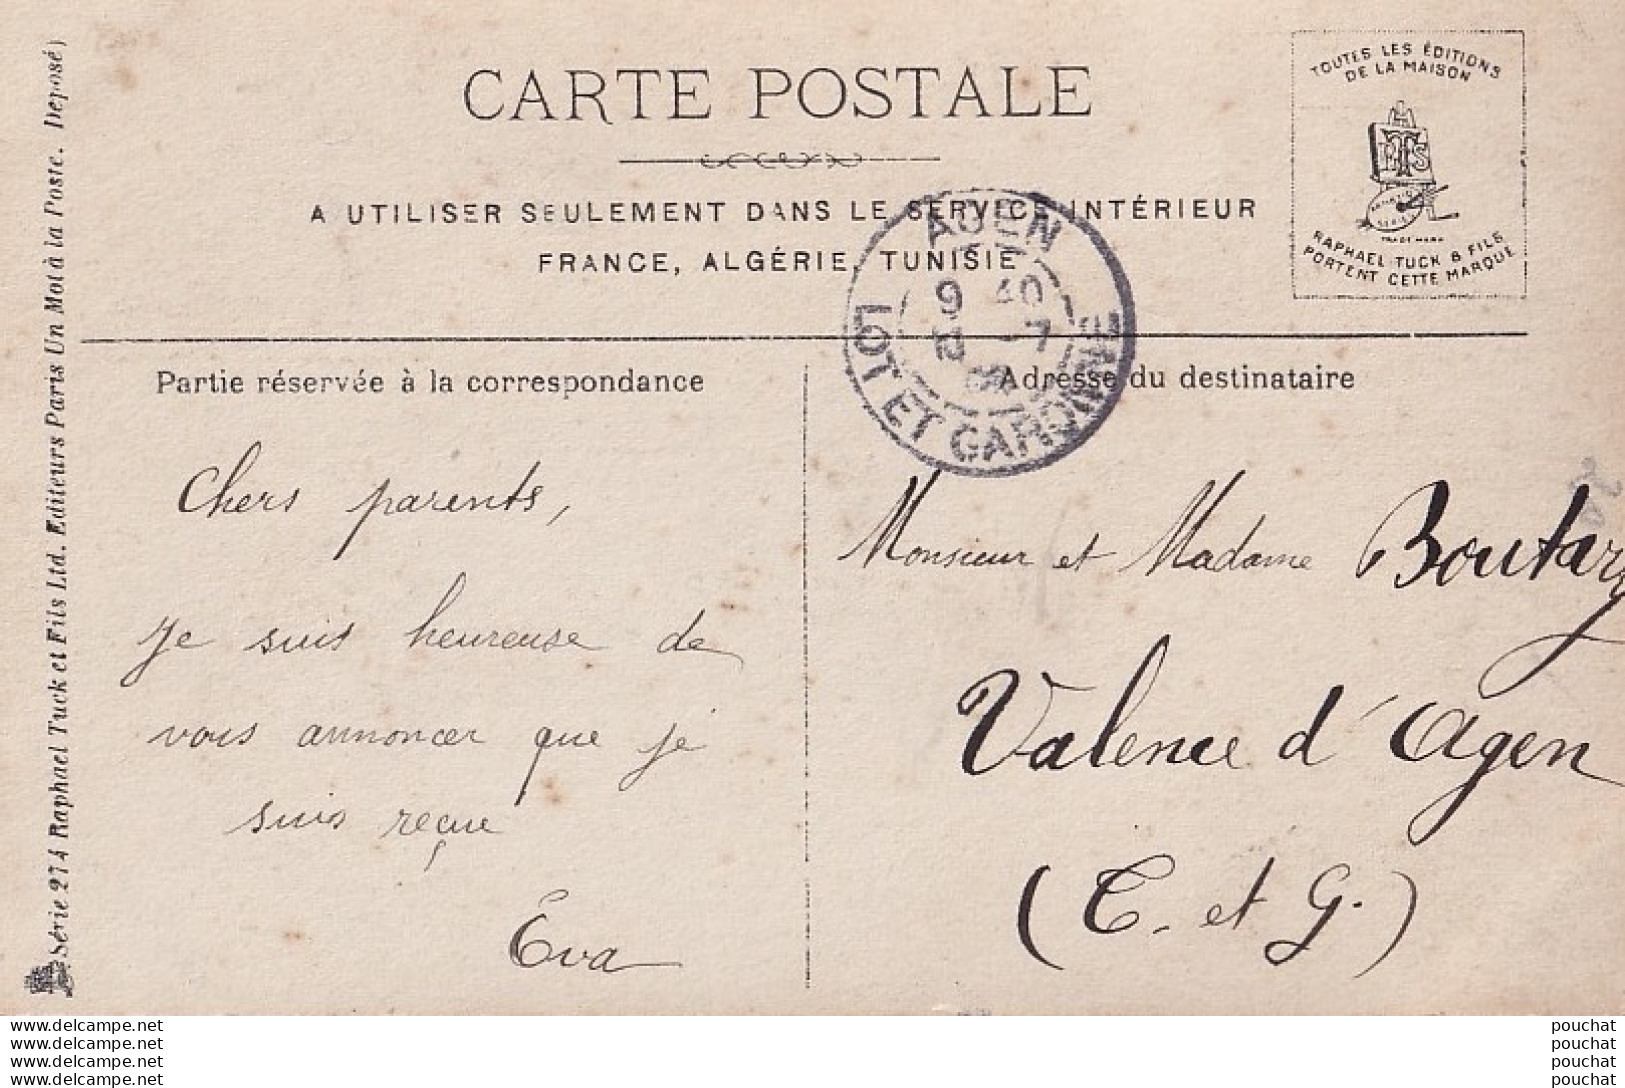 CARTE POSTALE
A UTILISER SEULEMENT DANS LE SERVICE INTÉRIEUR
FRANCE, ALGÉRIE, TUNISIE
TOUTES LES ÉDITIONS
DE LA MAISON
RTS
TRADE MARK
RAPHAEL TUCK & FILS
PORTENT CETTE MARQUE
AGEN
9 40
12 -7
LOT ET GARONNE
Série 274 Raphael Tuck et Fils Ltd. Editeurs Paris Un Mot à la Poste. Déposé)
Partie réservée à la correspondance
Chers parents,
Je suis heureuse de
vous annoncer que je
suis reçue
Eva
Adresse du destinataire
Monsieur et Madame Boutary
Valence d'Agen
(T. et G.)
www.delcampe.net
www.delcampe.net
www.delcampe.net
www.delcampe.net
pouchat
pouchat
pouchat
pouchat